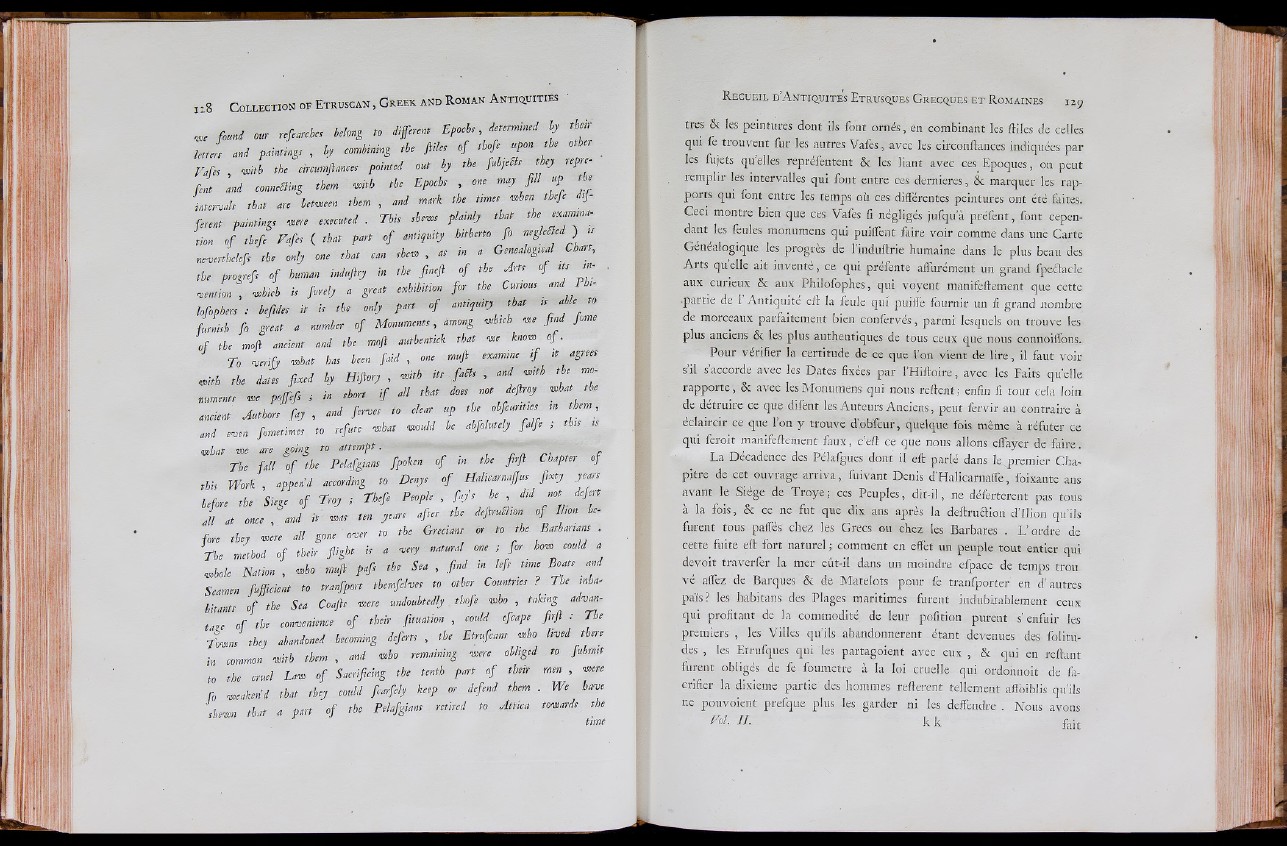 128 COLLECTION OF ETRUSCAN, GREEK AND ROMAN ANTIQUITIES
we found our reſearches belong to different Epochs, determined by their
letters and paintings , by combining the ſtiles of thoſe upon the other
Vaſes , with the circumſtances pointed out by the ſubjects they repre-
ſent and connecting them with the Epochs , one may fill up the
intervals that are between them , and mark the times when theſe dif-
ferent paintings were executed . This shews plainly that the examina-
tion of theſe Vaſes ( that part of antiquity hitherto ſo neglected ) is
nevertheleſs the only one that can shew , as in a Genealogical Chart,
the progreſs of human induſtry in the fineſt of the Arts of its in-
vention , which is ſurely a great exhibition for the Curious and Phi-
loſophers : beſides it is the only part of antiquity that is able to
furnish ſo great a number of Monuments, among which we find ſome
of the moſt ancient and the moſt authentick that we know of .
To verify what has been ſaid , one muſt examine if it agrees
with the dates fixed by Hiſtory , with its facts , and with the mo-
numents we poſſeſs ; in short if all that does not deſtroy what the
ancient Authors ſay , and ſerves to clear up the obſcurities in them ,
and even ſometimes to refute what would be abſolutely falſe ; this is
what we are going to attempt .
The fall of the Pelaſgians ſpoken of in the firſt Chapter of
this Work , appen'd according to Denys of Halicarnaſſus ſixty years
before the Siege of Troy ; Theſe People , ſay's he , did not deſert
all at once , and it was ten years after the deſtruction of Ilion be-
fore they were all gone over to the Grecians or to the Barbarians .
The method of their flight is a very natural one ; for how could a
whole Nation , who muſt paſs the Sea , find in leſs time Boats and
Seamen ſufficient to tranſport themſelves to other Countries ? The inha-
bitants of the Sea Coaſts were undoubtedly thoſe who , taking advan-
tage of the convenience of their ſituation , could eſcape firſt : The
Towns they abandoned becoming deſerts , the Etruſcans who lived there
in common with them , and who remaining were obliged to ſubmit
to the cruel Law of Sacrificing the tenth part of their men , were
ſo weaken'd that they could ſcarſely keep or defend them . We have
shewn that a part of the Pelaſgians retired to Attica towards the
time
RECUEIL D'ANTIQUITÉS ETRUSQUES GRECQUES ET ROMAINES 129
tres & les peintures dont ils ſont ornés, en combinant les ſtiles de celles
qui ſe trouvent ſur les autres Vaſes, avec les circonſtances indiquées par
les ſujets qu'elles repréſentent & les liant avec ces Epoques, on peut
remplir les intervalles qui ſont entre ces dernieres, & marquer les rap-
ports qui ſont entre les temps où ces différentes peintures ont été faites.
Ceci montre bien que ces Vaſes ſi négligés juſqu'à préſent, ſont cepen-
dant les ſeules monumens qui puiſſent faire voir comme dans une Carte
Généalogique les progrès de l'induſtrie humaine dans le plus beau des
Arts qu'elle ait inventé, ce qui préſente aſſurément un grand ſpectacle
aux curieux & aux Philoſophes, qui voyent manifeſtement que cette
partie de l'Antiquité eſt la ſeule qui puiſſe fournir un ſi grand nombre
de morceaux parfaitement bien conſervés, parmi lesquels on trouve les
plus anciens & les plus authentiques de tous ceux que nous connoiſſons.
Pour vérifier la certitude de ce que l'on vient de lire, il faut voir
s'il s'accorde avec les Dates fixées par l'Hiſtoire, avec les Faits qu'elle
rapporte, & avec les Monumens qui nous reſtent; enfin ſi tout cela loin
de détruire ce que diſent les Auteurs Anciens, peut ſervir au contraire à
éclaircir ce que l'on y trouve d'obſcur, quelque fois même à réfuter ce
qui ſeroit manifeſtement faux, c'eſt ce que nous allons eſſayer de faire.
La Décadence des Pélaſgues dont il eſt parlé dans le premier Cha-
pitre de cet ouvrage arriva, ſuivant Denis d'Halicarnaſſe, ſoixante ans
avant le Siége de Troye; ces Peuples, dit-il, ne déſerterent pas tous
à la fois, & ce ne fut que dix ans après la deſtruction d'Ilion qu'ils
furent tous paſſés chez les Grecs ou chez les Barbares . L'ordre de
cette fuite eſt fort naturel; comment en effèt un peuple tout entier qui
devoit traverſer la mer eût-il dans un moindre eſpace de temps trou
vé aſſez de Barques & de Matelots pour ſe tranſporter en d'autres
païs? les habitans des Plages maritimes furent indubitablement ceux
qui profitant de la commodité de leur poſition purent s'enfuir les
premiers , les Villes qu'ils abandonnerent étant devenues des ſolitu-
des , les Etruſques qui les partagoient avec eux , & qui en reſtant
furent obligés de ſe ſoumetre à la loi cruelle qui ordonnoit de ſa-
crifier la dixieme partie des hommes reſterent tellement affoiblis qu'ils
ne pouvoient preſque plus les garder ni les deffendre . Nous avons
Vol. II. k k fait